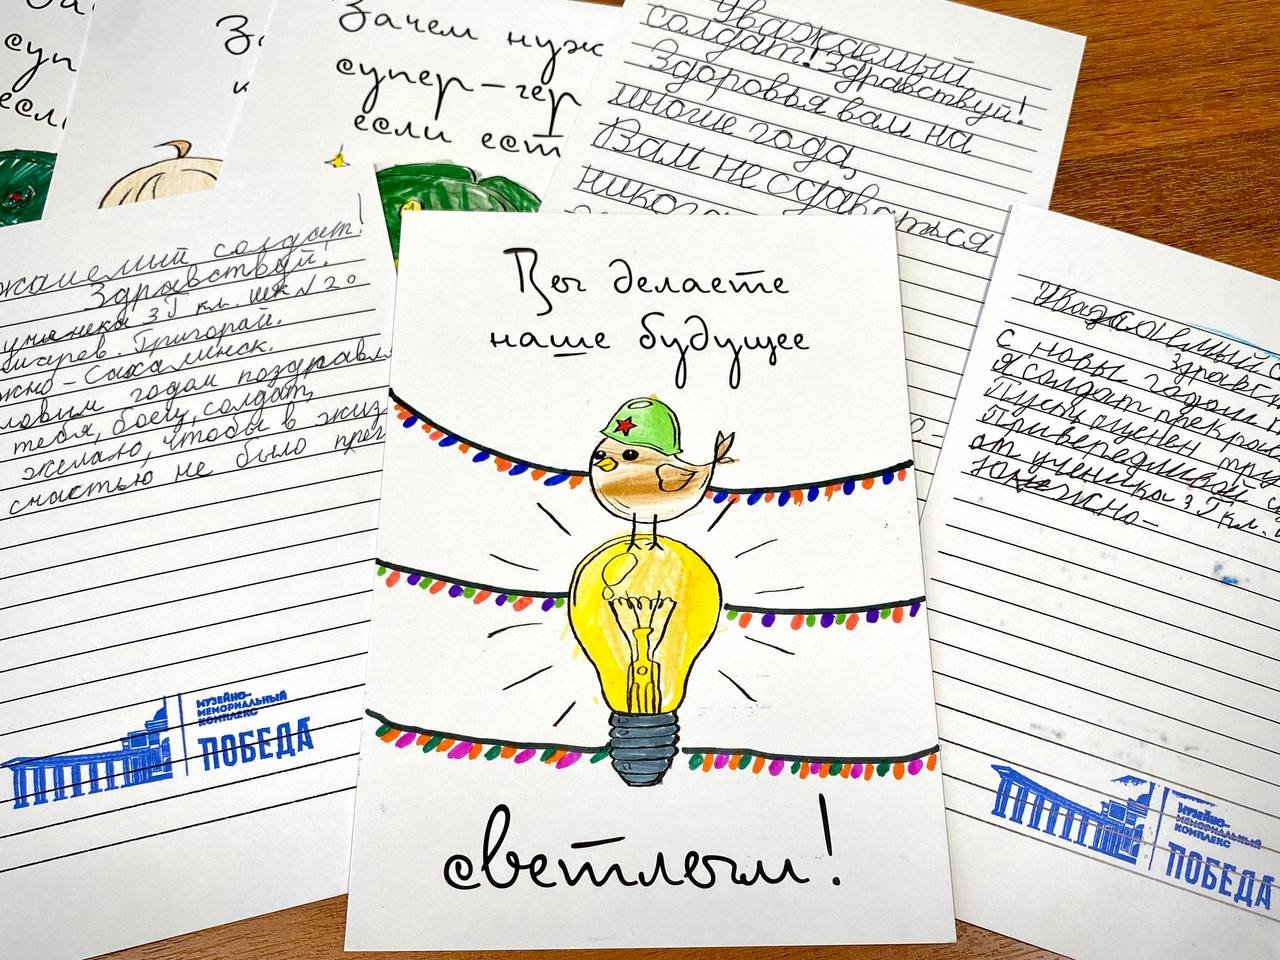 Зачем нуж
супер-гер
если ест
Уважаемый
солдат! Здравствуй!
Здоровья вам на
многие года,
Вам не сдаваться
никог
солдат!
Здравствуй!
3 Г кл. шк N 20
Григорай.
-Сахалинск.
годом поздравл
тебя, боец, солдат,
желаю, чтобы в жиз
счастью не было прег
МУЗЕЙНО-
МЕМОРИАЛЬНЫЙ
КОМПЛЕКС
ПОБЕДА
Вы делаете
наше будущее
светлым!
С новы годом
Я солдат прекрас
Пусть оценен тру
Привередливой
от ученика 3 Г кл.
Южно-
МУЗЕЙНО-
МЕМОРИАЛЬНЫЙ
КОМПЛЕКС
ПОБЕДА